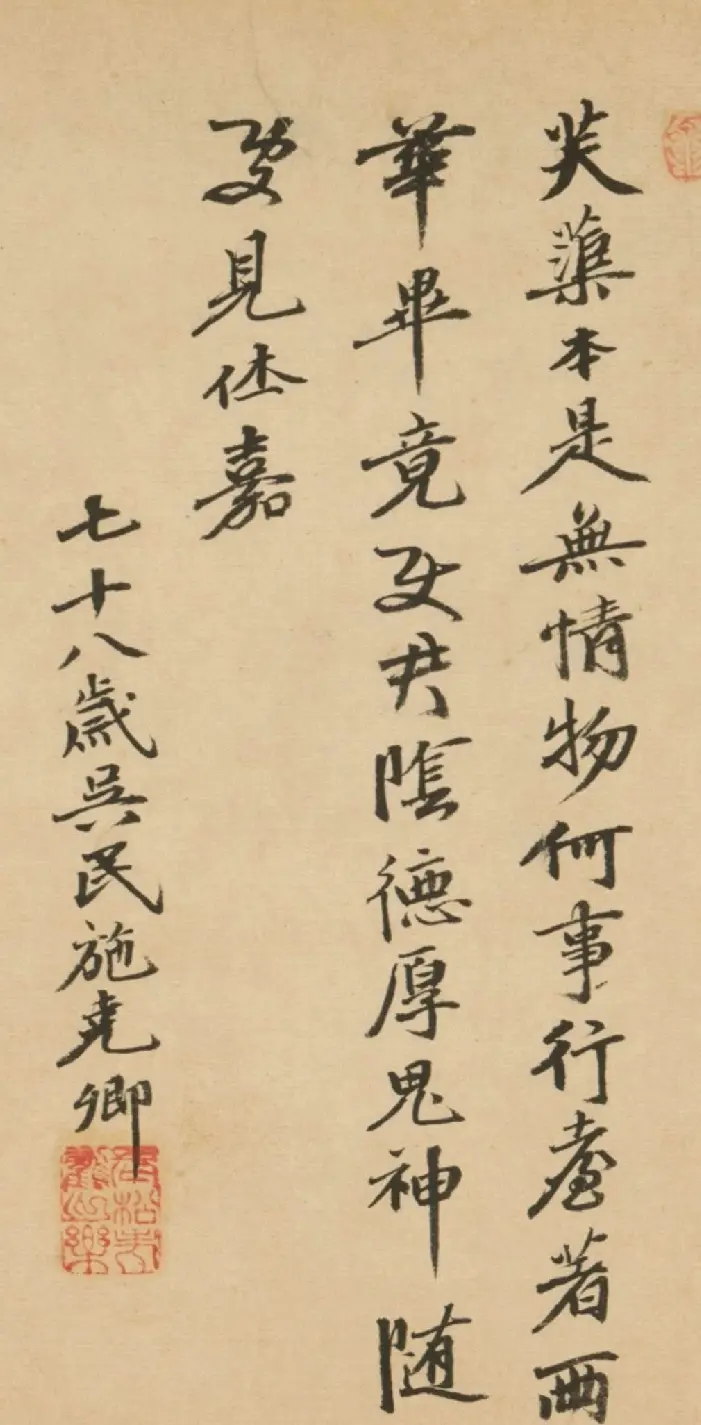 芙蕖本是無情物何事行臺著兩
華畢竟史君陰德厚鬼神随
處見休嘉
七十八歲吳民施堯卿